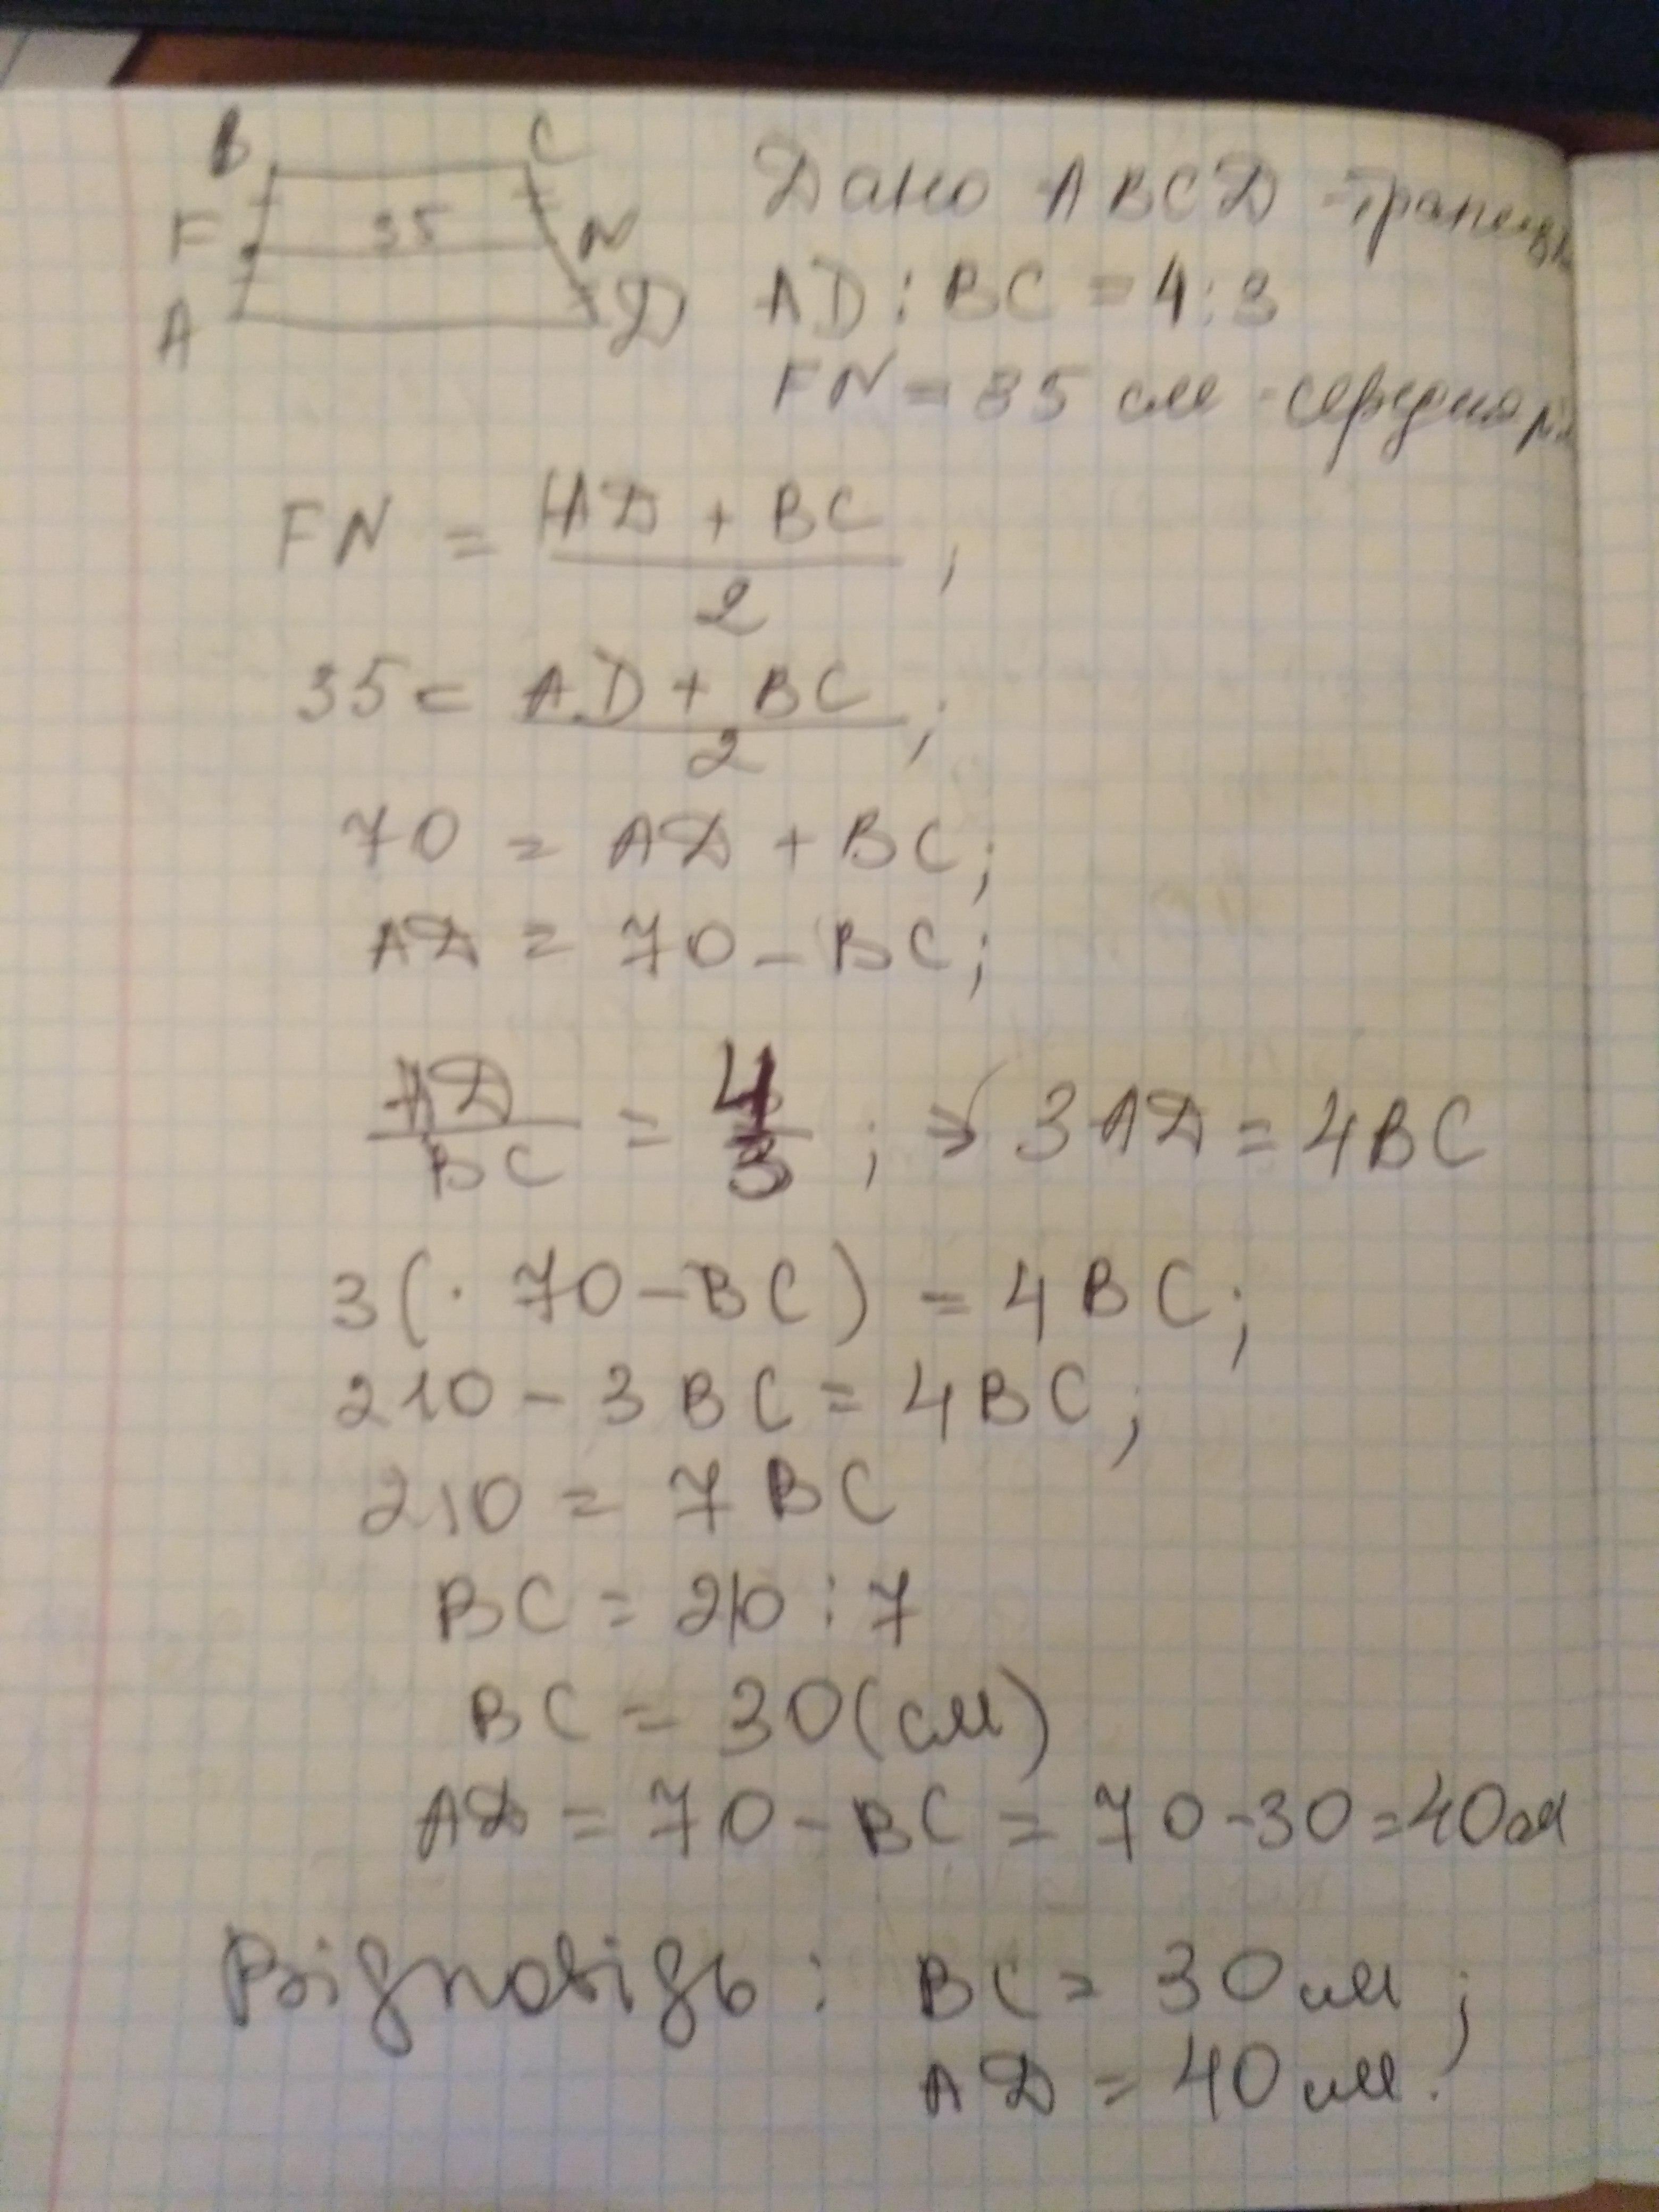 B C
F 35 N
A D
Дано ABCD - трапеція
AD : BC = 4 : 3
FN = 35 см - середня
FN = AD + BC / 2 ;
35 = AD + BC / 2 ;
70 = AD + BC ;
AD = 70 - BC ;
AD / BC = 4 / 3 ; => 3AD = 4BC
3 ( · 70 - BC ) = 4 BC ;
210 - 3 BC = 4 BC ;
210 = 7 BC
BC = 210 : 7
BC = 30 (см)
AD = 70 - BC = 70 - 30 = 40 см
Відповідь : BC = 30 см ;
AD = 40 см .